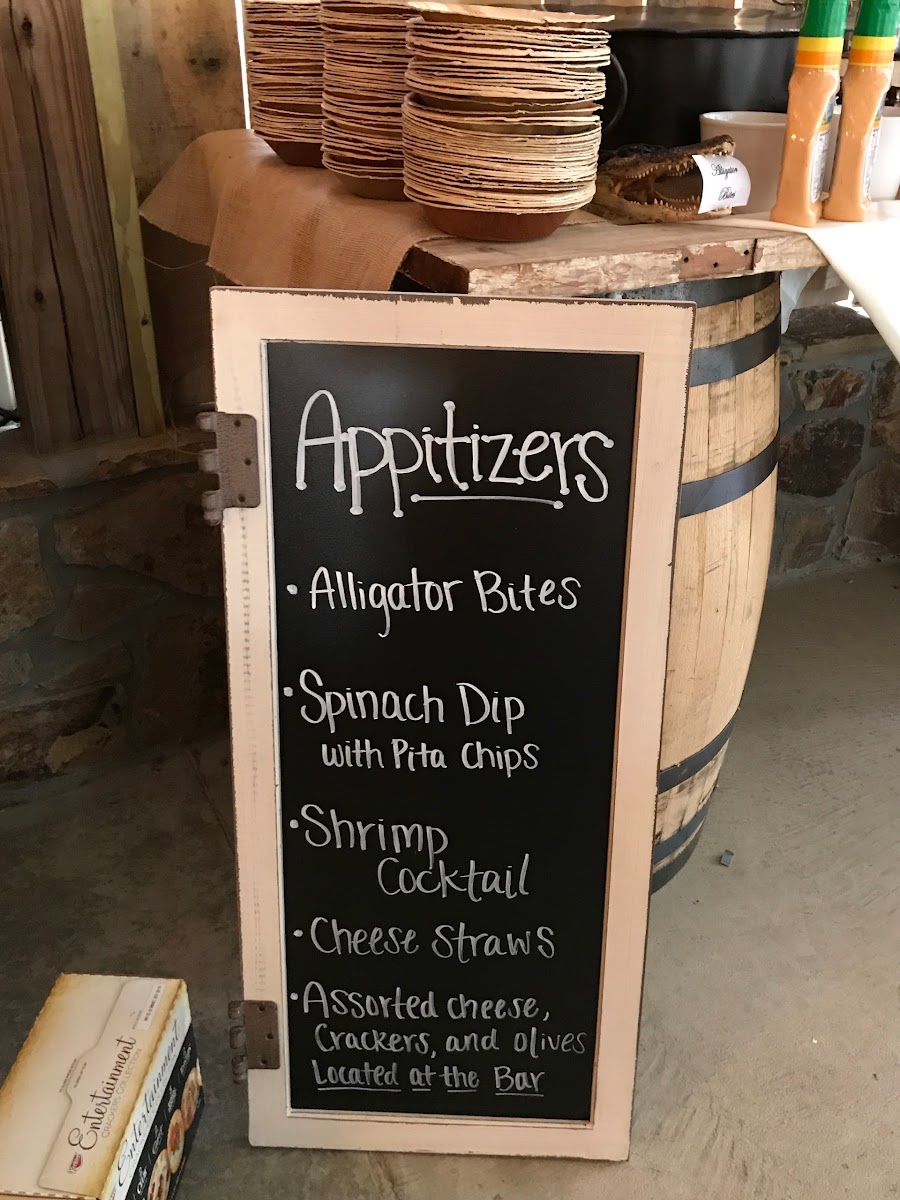 Alligator
Bites
Appitizers
• Alligator Bites
• Spinach Dip
with Pita Chips
• Shrimp
Cocktail
• Cheese Straws
• Assorted cheese,
Crackers, and olives
Located at the Bar
Entertainment
CRACKERS COLLECTION
Entertainment